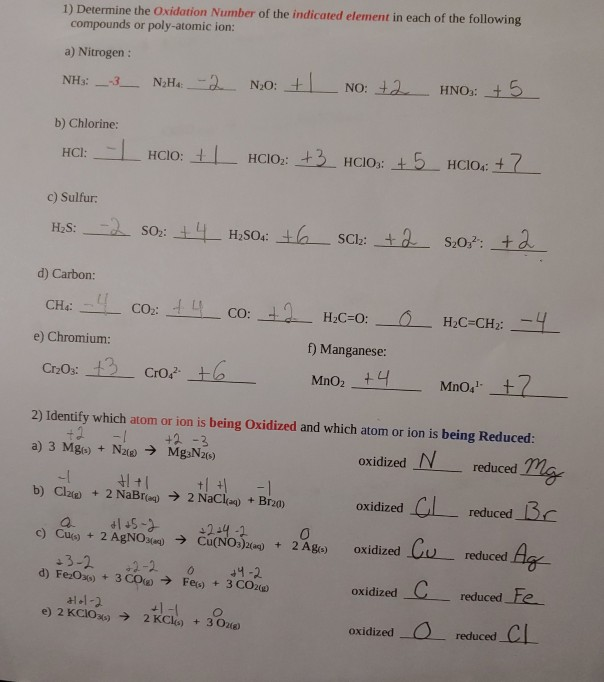 1) Determine the Oxidation Number of the indicated element in each of the following
compounds or poly-atomic ion:
a) Nitrogen :
NH₃: -3 N₂H₄: -2 N₂O: +1 NO: +2 HNO₃: +5
b) Chlorine:
HCl: -1 HClO: +1 HClO₂: +3 HClO₃: +5 HClO₄: +7
c) Sulfur:
H₂S: -2 SO₂: +4 H₂SO₄: +6 SCl₂: +2 S₂O₃²⁻: +2
d) Carbon:
CH₄: -4 CO₂: +4 CO: +2 H₂C=O: 0 H₂C=CH₂: -4
e) Chromium: f) Manganese:
Cr₂O₃: +3 CrO₄²⁻ +6 MnO₂ +4 MnO₄¹⁻ +7
2) Identify which atom or ion is being Oxidized and which atom or ion is being Reduced:
+2 -1 +2 -3
a) 3 Mg(s) + N₂(g) → Mg₃N₂(s) oxidized N reduced Mg
-1 +1 +1 +1 +1 -1
b) Cl₂(g) + 2 NaBr(aq) → 2 NaCl(aq) + Br₂(l) oxidized Cl reduced Br
0 +1+5-2 +2+4-2 0
c) Cu(s) + 2 AgNO₃(aq) → Cu(NO₃)₂(aq) + 2 Ag(s) oxidized Cu reduced Ag
+3-2 +2-2 0 +4-2
d) Fe₂O₃(s) + 3 CO(g) → Fe(s) + 3 CO₂(g) oxidized C reduced Fe
+1+1-2 +1-1 0
e) 2 KClO₃(s) → 2 KCl(s) + 3 O₂(g) oxidized O reduced Cl